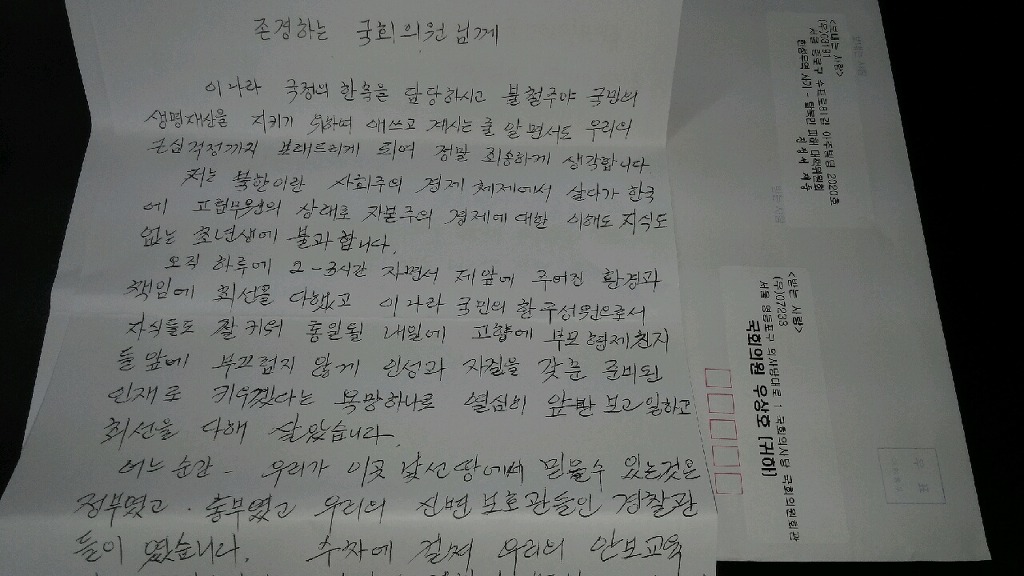 존경하는 국회의원님께
이나라 국정의 한축을 담당하시고 불철주야 국민의
생명재산을 지키기 위하여 애쓰고 계시는줄 알면서도 우리의
근심걱정까지 보태드리게 되여 정말 죄송하게 생각합니다
저는 북한이란 사회주의 경제 체제에서 살다가 한국
에 고립무원의 상태로 자본주의 경제에 대한 이해도 지식도
없는 초년생에 불과합니다.
오직 하루에 2-3시간 자면서 제앞에 주어진 환경과
책임에 최선을 다했고 이나라 국민의 한구성원으로서
자식들도 잘 키워 통일될 내일에 고향에 부모형제친지
들앞에 부끄럽지 않게 인성과 자질을 갖춘 준비된
인재로 키우겠다는 욕망하나로 열심히 앞만 보고 일하고
최선을 다해 살았습니다.
어느순간- 우리가 이곳 낯선땅에서 믿을수 있는것은
정부였고. 정부였고 우리의 신변보호관들인 경찰관
들이 였습니다. 수차에 걸쳐 우리의 안보교육
<보내는 사람>
서울 종로구 81길 2020호
탈북민 피해 대책위원회
<받는 사람>
(우)07233
서울 영등포구 의사당대로 1 국회의사당 국회의원회관
국회의원 우상호 (귀하)
받는 사람
우표